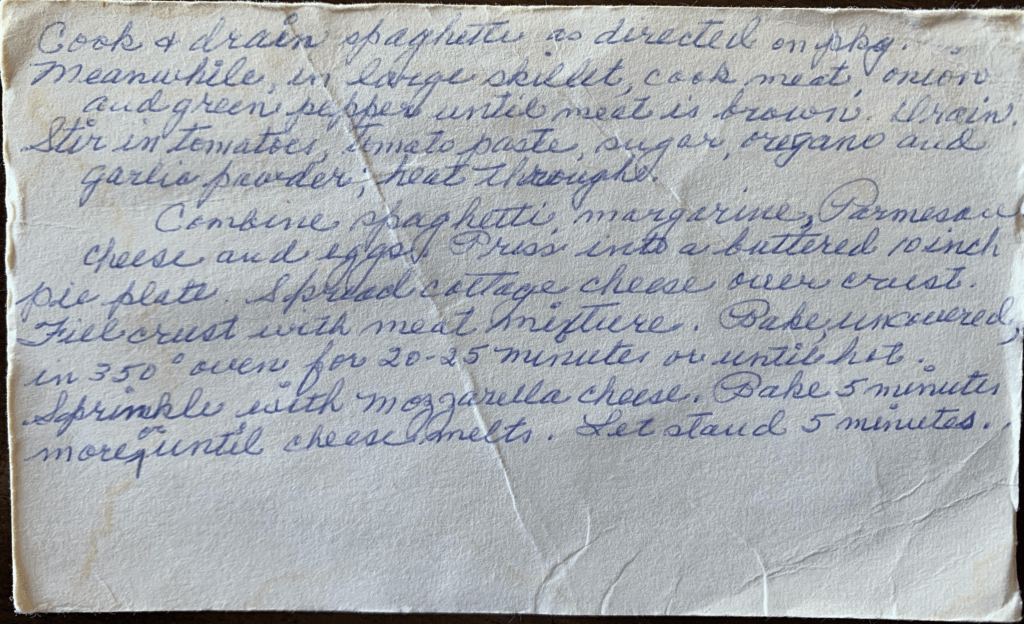 Cook & drain spaghetti as directed on pkg.
Meanwhile, in large skillet, cook meat, onion
and green pepper until meat is brown. Drain.
Stir in tomatoes, tomato paste, sugar, oregano and
garlic powder; heat through.
Combine spaghetti, margarine, Parmesan
cheese and eggs. Press into a buttered 10 inch
pie plate. Spread cottage cheese over crust.
Fill crust with meat mixture. Bake, uncovered,
in 350° oven for 20-25 minutes or until hot.
Sprinkle with mozzarella cheese. Bake 5 minutes
more or until cheese melts. Let stand 5 minutes.